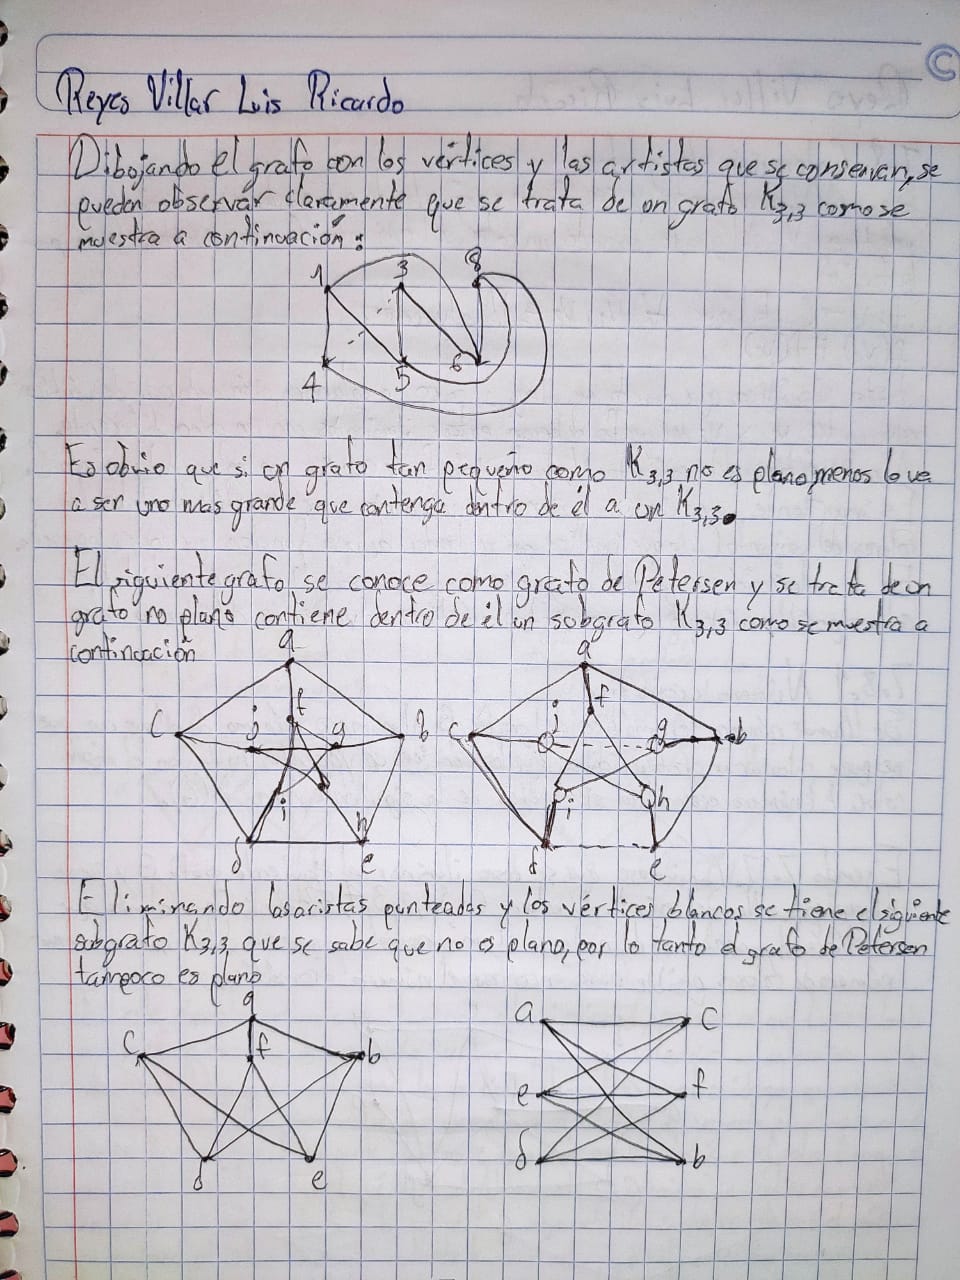 Reyes Villar Luis Ricardo
Dibujando el grafo con los vértices y las artistas que se conservan, se
pueden observar claramente que se trata de un grafo K3,3 como se
muestra a continuación:
1 3 8
4 5 6
Es obvio que si un grafo tan pequeño como K3,3 no es plano, menos lo ve
a ser uno mas grande que contenga dntro de él a un K3,3.
El siguiente grafo se conoce como grafo de Petersen y se trata de un
grafo no plano contiene dentro de él un subgrafo K3,3 como se muestra a
continuación
a a
f f
c j g b c j g b
i i h
d h e d e
Eliminando las aristas punteadas y los vértices blancos se tiene el siguiente
subgrafo K3,3 que se sabe que no es plano, por lo tanto el grafo de Petersen
tampoco es plano
a a c
c f b e f
d e d b